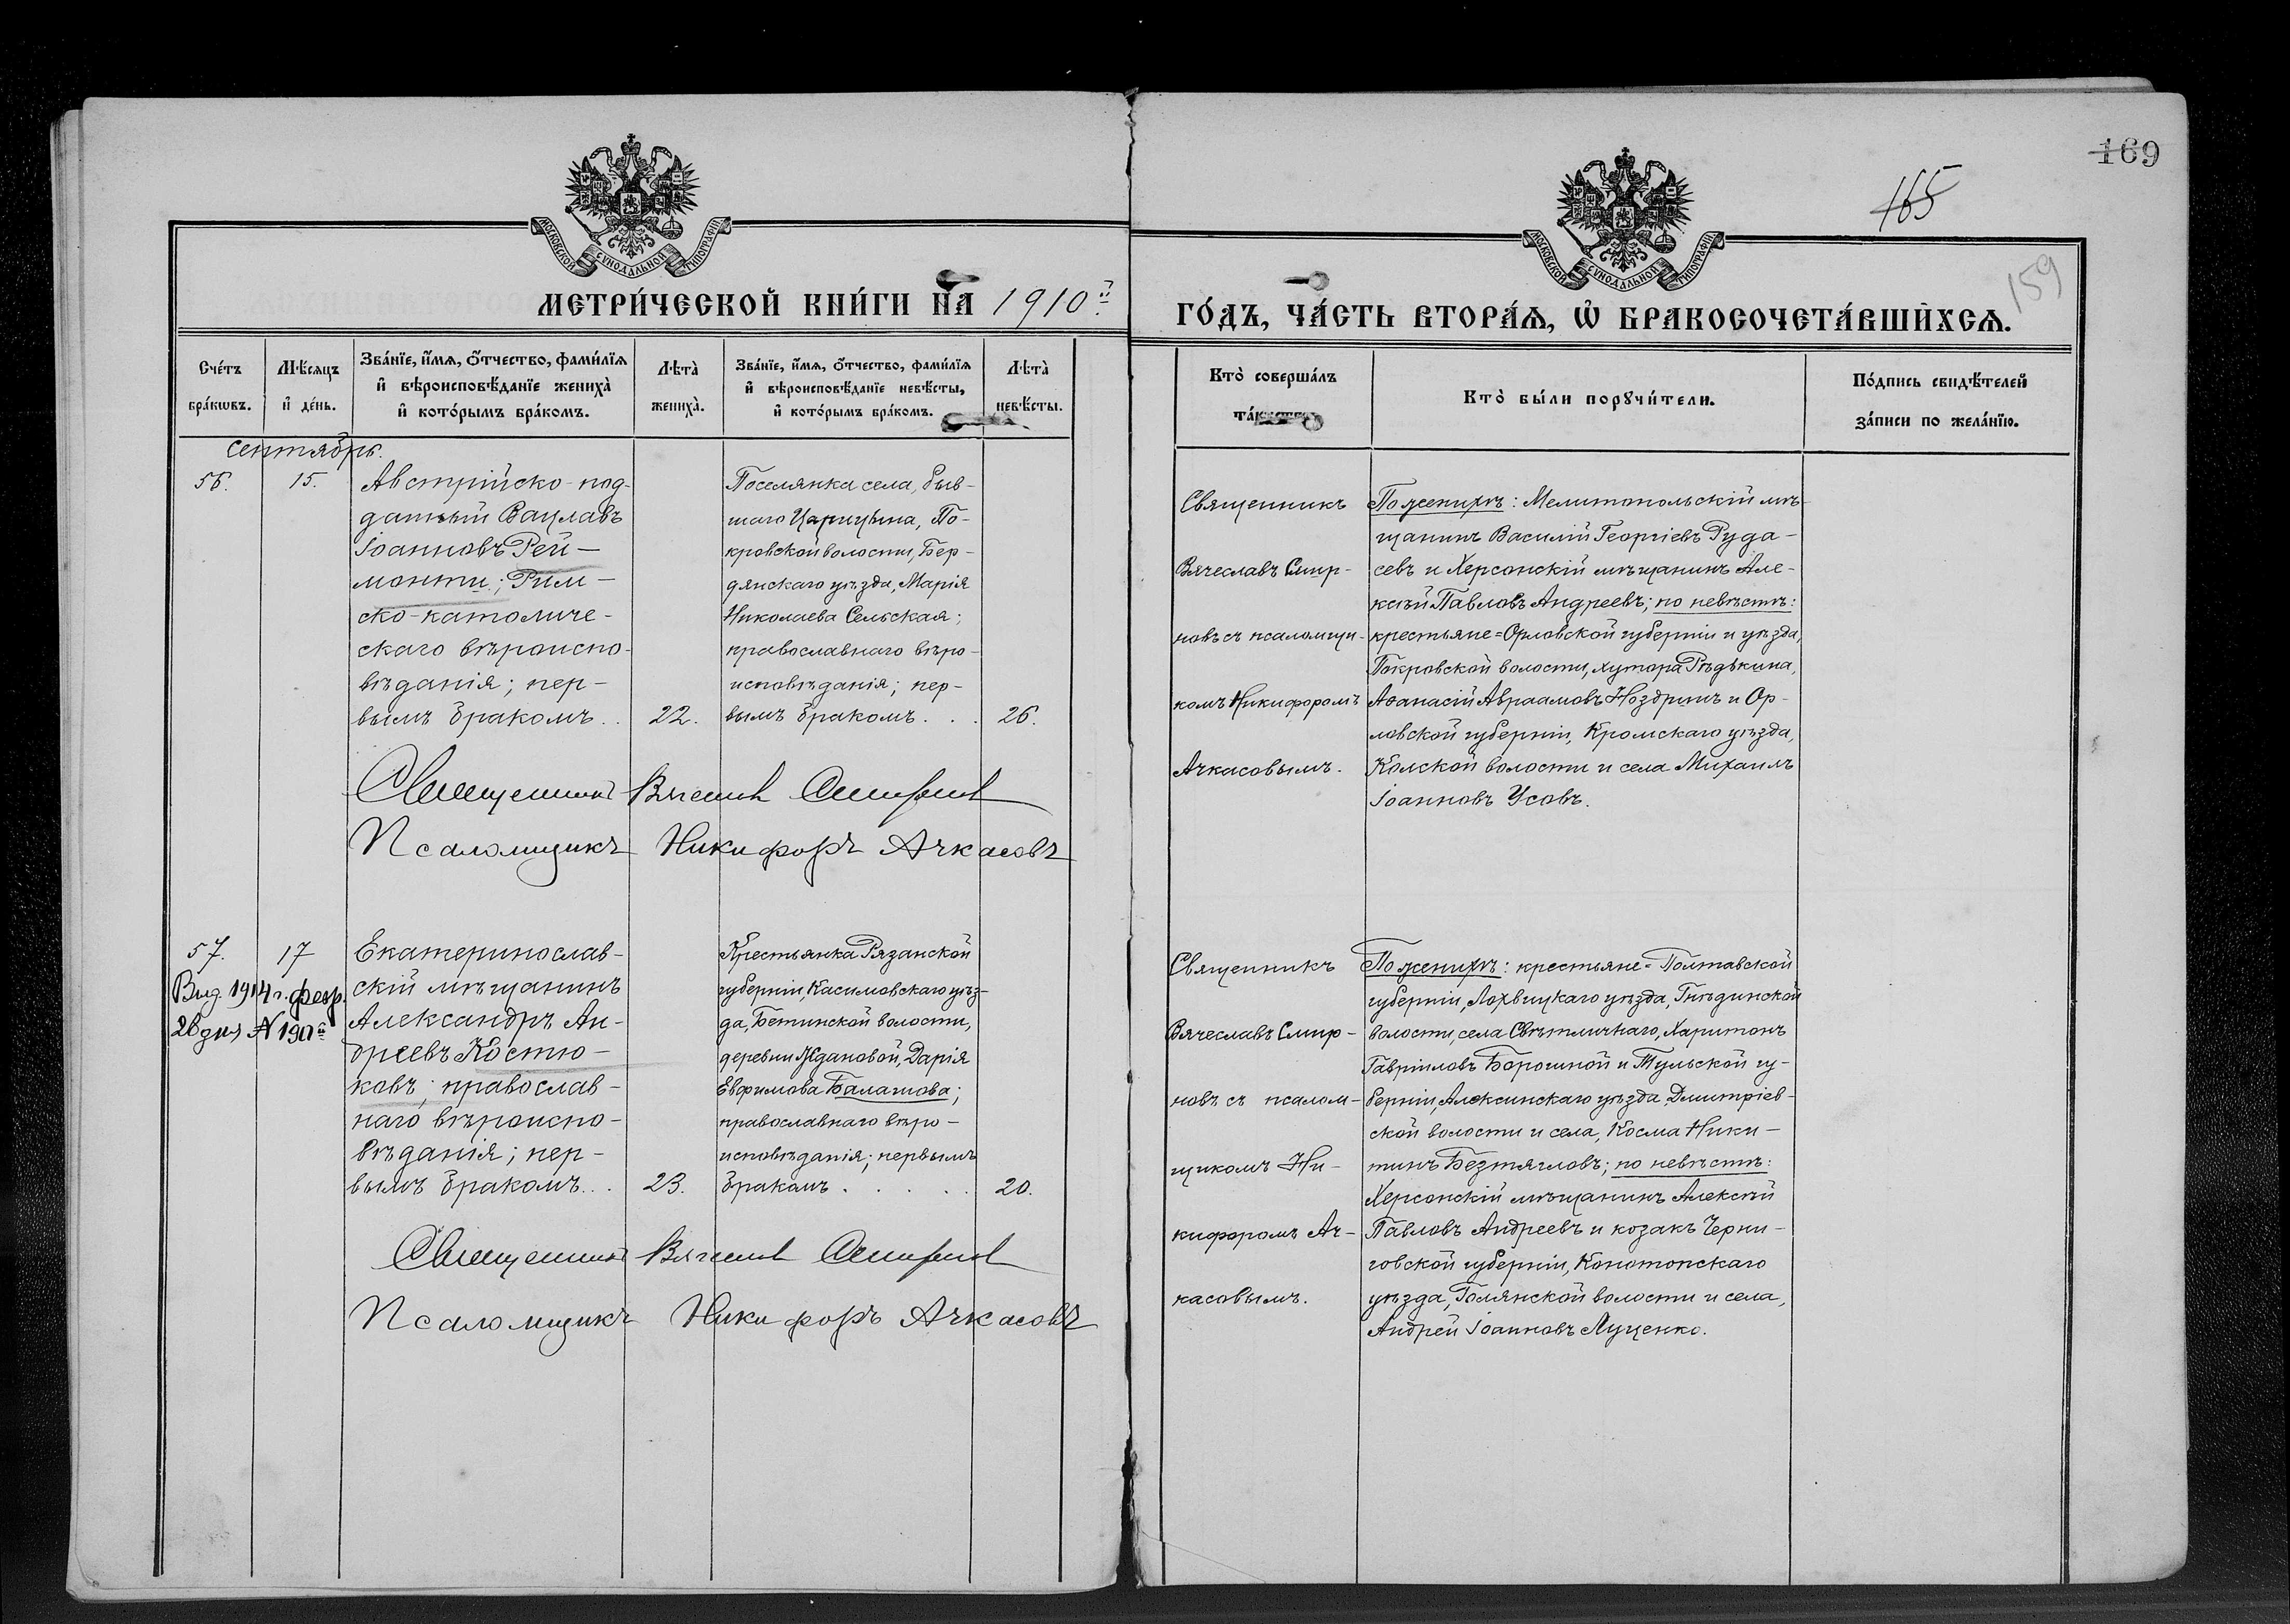 169
165
159
МОСКОВСКОЙ СѴНОДАЛЬНОЙ ТИПОГРАФІИ
МОСКОВСКОЙ СѴНОДАЛЬНОЙ ТИПОГРАФІИ
МЕТРИ́ЧЕСКОЙ КНИ́ГИ НА 1910й
ГО́ДЪ, ЧА́СТЬ ВТОРА́Ѧ, Ѡ БРАКОСОЧЕТА́ВШИХСѦ.
Сче́тъ бра́кωвъ.
Мѣ́сяцъ и де́нь.
Зва́нїе, и́мѧ, о́тчество, фами́лїѧ и вѣроисповѣ́данїе жениха̀ и кото́рымъ бра́комъ.
Лѣта̀ жениха̀.
Зва́нїе, и́мѧ, о́тчество, фами́лїѧ и вѣроисповѣ́данїе невѣ́сты, и кото́рымъ бра́комъ.
Лѣта̀ невѣ́сты.
Кто̀ соверша́лъ
Кто̀ бы́ли порꙋчи́тели.
По́дпись свидѣ́телей за́писи по жела́нїю.
Сентябрь.
56.
15.
Австрійско-под-
данный Вацлавъ
Іоанновъ Рей-
монти; Рим-
ско-католиче-
скаго вѣроиспо-
вѣданія; пер-
вымъ бракомъ..
22.
Поселянка села, быв-
шаго Царицына, По-
кровской волости, Бер-
дянскаго уѣзда, Марія
Николаева Сельская;
православнаго вѣро-
исповѣданія; пер-
вымъ бракомъ...
26.
Священникъ
Вячеславъ Смир-
новъ съ псаломщи-
комъ Никифоромъ
Ачкасовымъ.
По женихѣ: Мелитопольскій мѣ-
щанинъ Василій Георгіевъ Руда-
севъ и Херсонскій мѣщанинъ Але-
ксѣй Павловъ Андреевъ; по невѣстѣ:
крестьяне=Орловской губерніи и уѣзда,
Покровской волости, хутора Рѣдькина,
Аѳанасій Авраамовъ Ноздринъ и Ор-
ловской губерніи, Кромскаго уѣзда,
Колской волости и села Михаилъ
Іоанновъ Усовъ.
Священникъ Вячеславъ Смирновъ
Псаломщикъ Никифоръ Ачкасовъ
57.
17
Выд. 1914 г. февр.
26 дня № 190й
Екатеринослав-
скій мѣщанинъ
Александръ Ан-
дреевъ Костю-
ковъ; православ-
наго вѣроиспо-
вѣданія; пер-
вымъ бракомъ...
23.
Крестьянка Рязанской
губерніи, Касимовскаго уѣз-
да, Бетинской волости,
деревни Ждановой, Дарія
Евфимова Балашова;
православнаго вѣро-
исповѣданія; первымъ
бракомъ.....
20.
Священникъ
Вячеславъ Смир-
новъ съ псалом-
щикомъ Ни-
кифоромъ Ач-
касовымъ.
По женихѣ: крестьяне=Полтавской
губерніи, Лохвицкаго уѣзда, Гнѣдинской
волости, села Свѣтличнаго, Харитонъ
Гавріиловъ Борошной и Тульской гу-
берніи, Алексинскаго уѣзда, Дмитріев-
ской волости и села, Косма Ники-
тинъ Безтягловъ; по невѣстѣ:
Херсонскій мѣщанинъ Алексѣй
Павловъ Андреевъ и козакъ Черни-
говской губерніи, Конотопскаго
уѣзда, Голянской волости и села,
Андрей Іоанновъ Луценко.
Священникъ Вячеславъ Смирновъ
Псаломщикъ Никифоръ Ачкасовъ